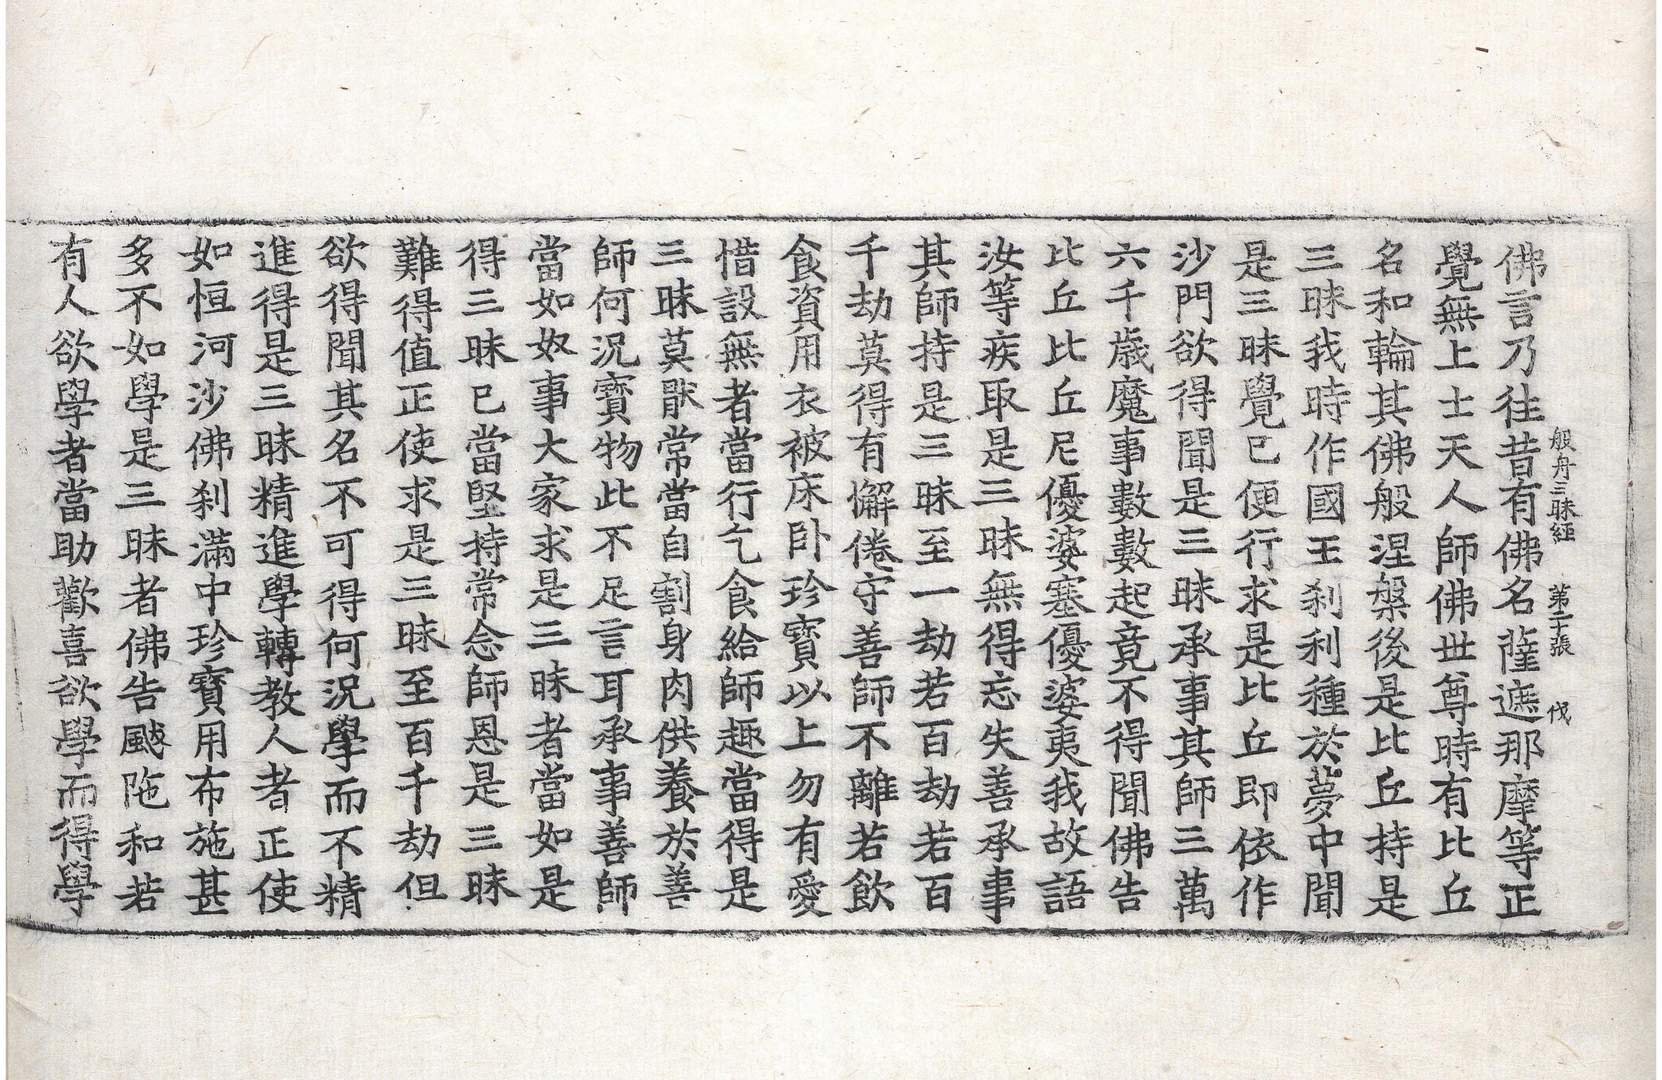 般舟三昧經 第二十張 伐
佛言乃往昔有佛名薩遮那摩等正
覺無上士天人師佛世尊時有比丘
名和輪其佛般涅槃後是比丘持是
三昧我時作國王刹利種於夢中聞
是三昧覺已便行求是比丘即依作
沙門欲得聞是三昧承事其師三萬
六千歲魔事數數起竟不得聞佛告
比丘比丘尼優婆塞優婆夷我故語
汝等疾取是三昧無得忘失善承事
其師持是三昧至一劫若百劫若百
千劫莫得有懈倦守善師不離若飲
食資用衣被床卧珍寶以上勿有愛
惜設無者當行乞食給師趣當得是
三昧莫猒常當自割身肉供養於善
師何況寶物此不足言耳承事善師
當如奴事大家求是三昧者當如是
得三昧已當堅持常念師恩是三昧
難得值正使求是三昧至百千劫但
欲得聞其名不可得何況學而不精
進得是三昧精進學轉教人者正使
如恒河沙佛刹滿中珍寶用布施甚
多不如學是三昧者佛告颰陁和若
有人欲學者當助歡喜欲學而得學